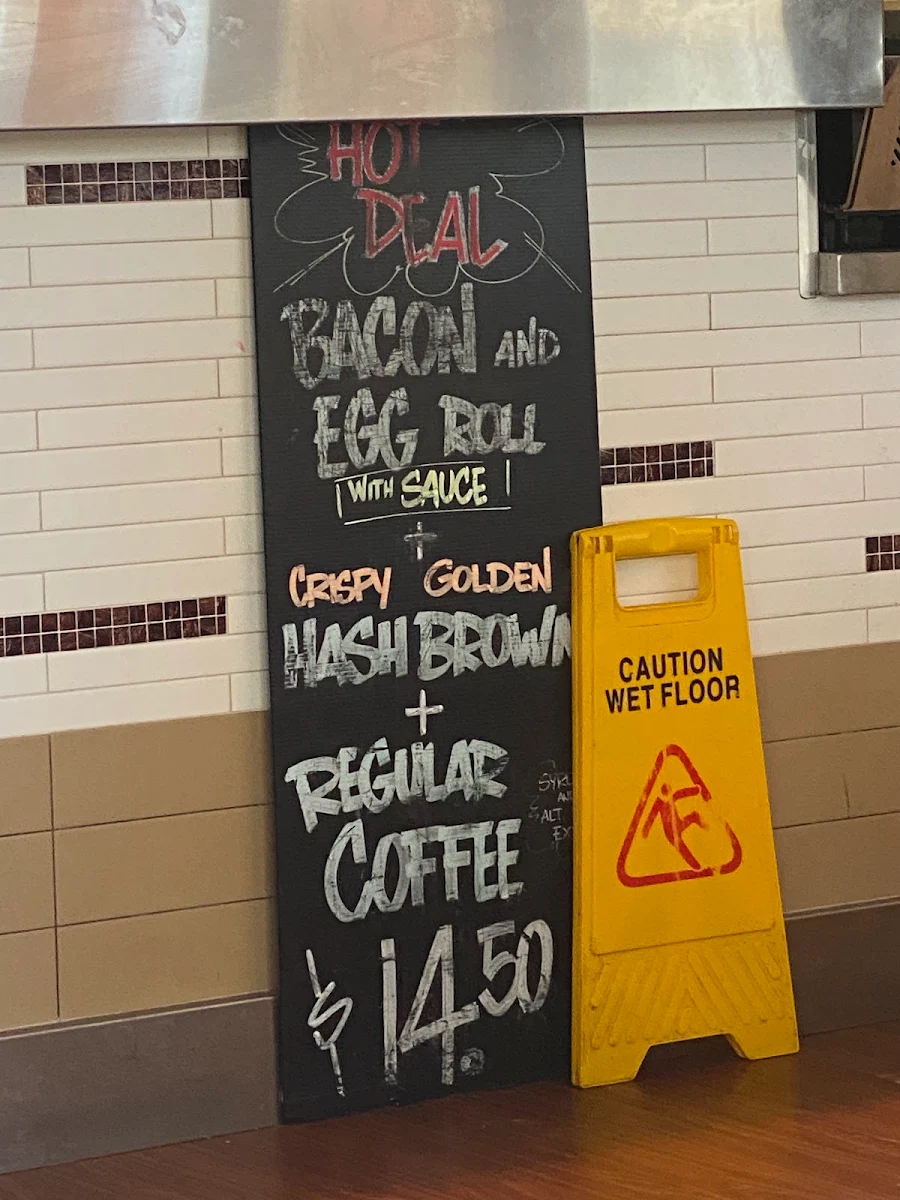 HOT
DEAL
BACON AND
EGG ROLL
WITH SAUCE
+
CRISPY GOLDEN
HASH BROWN
+
REGULAR
COFFEE
$14.50
CAUTION
WET FLOOR